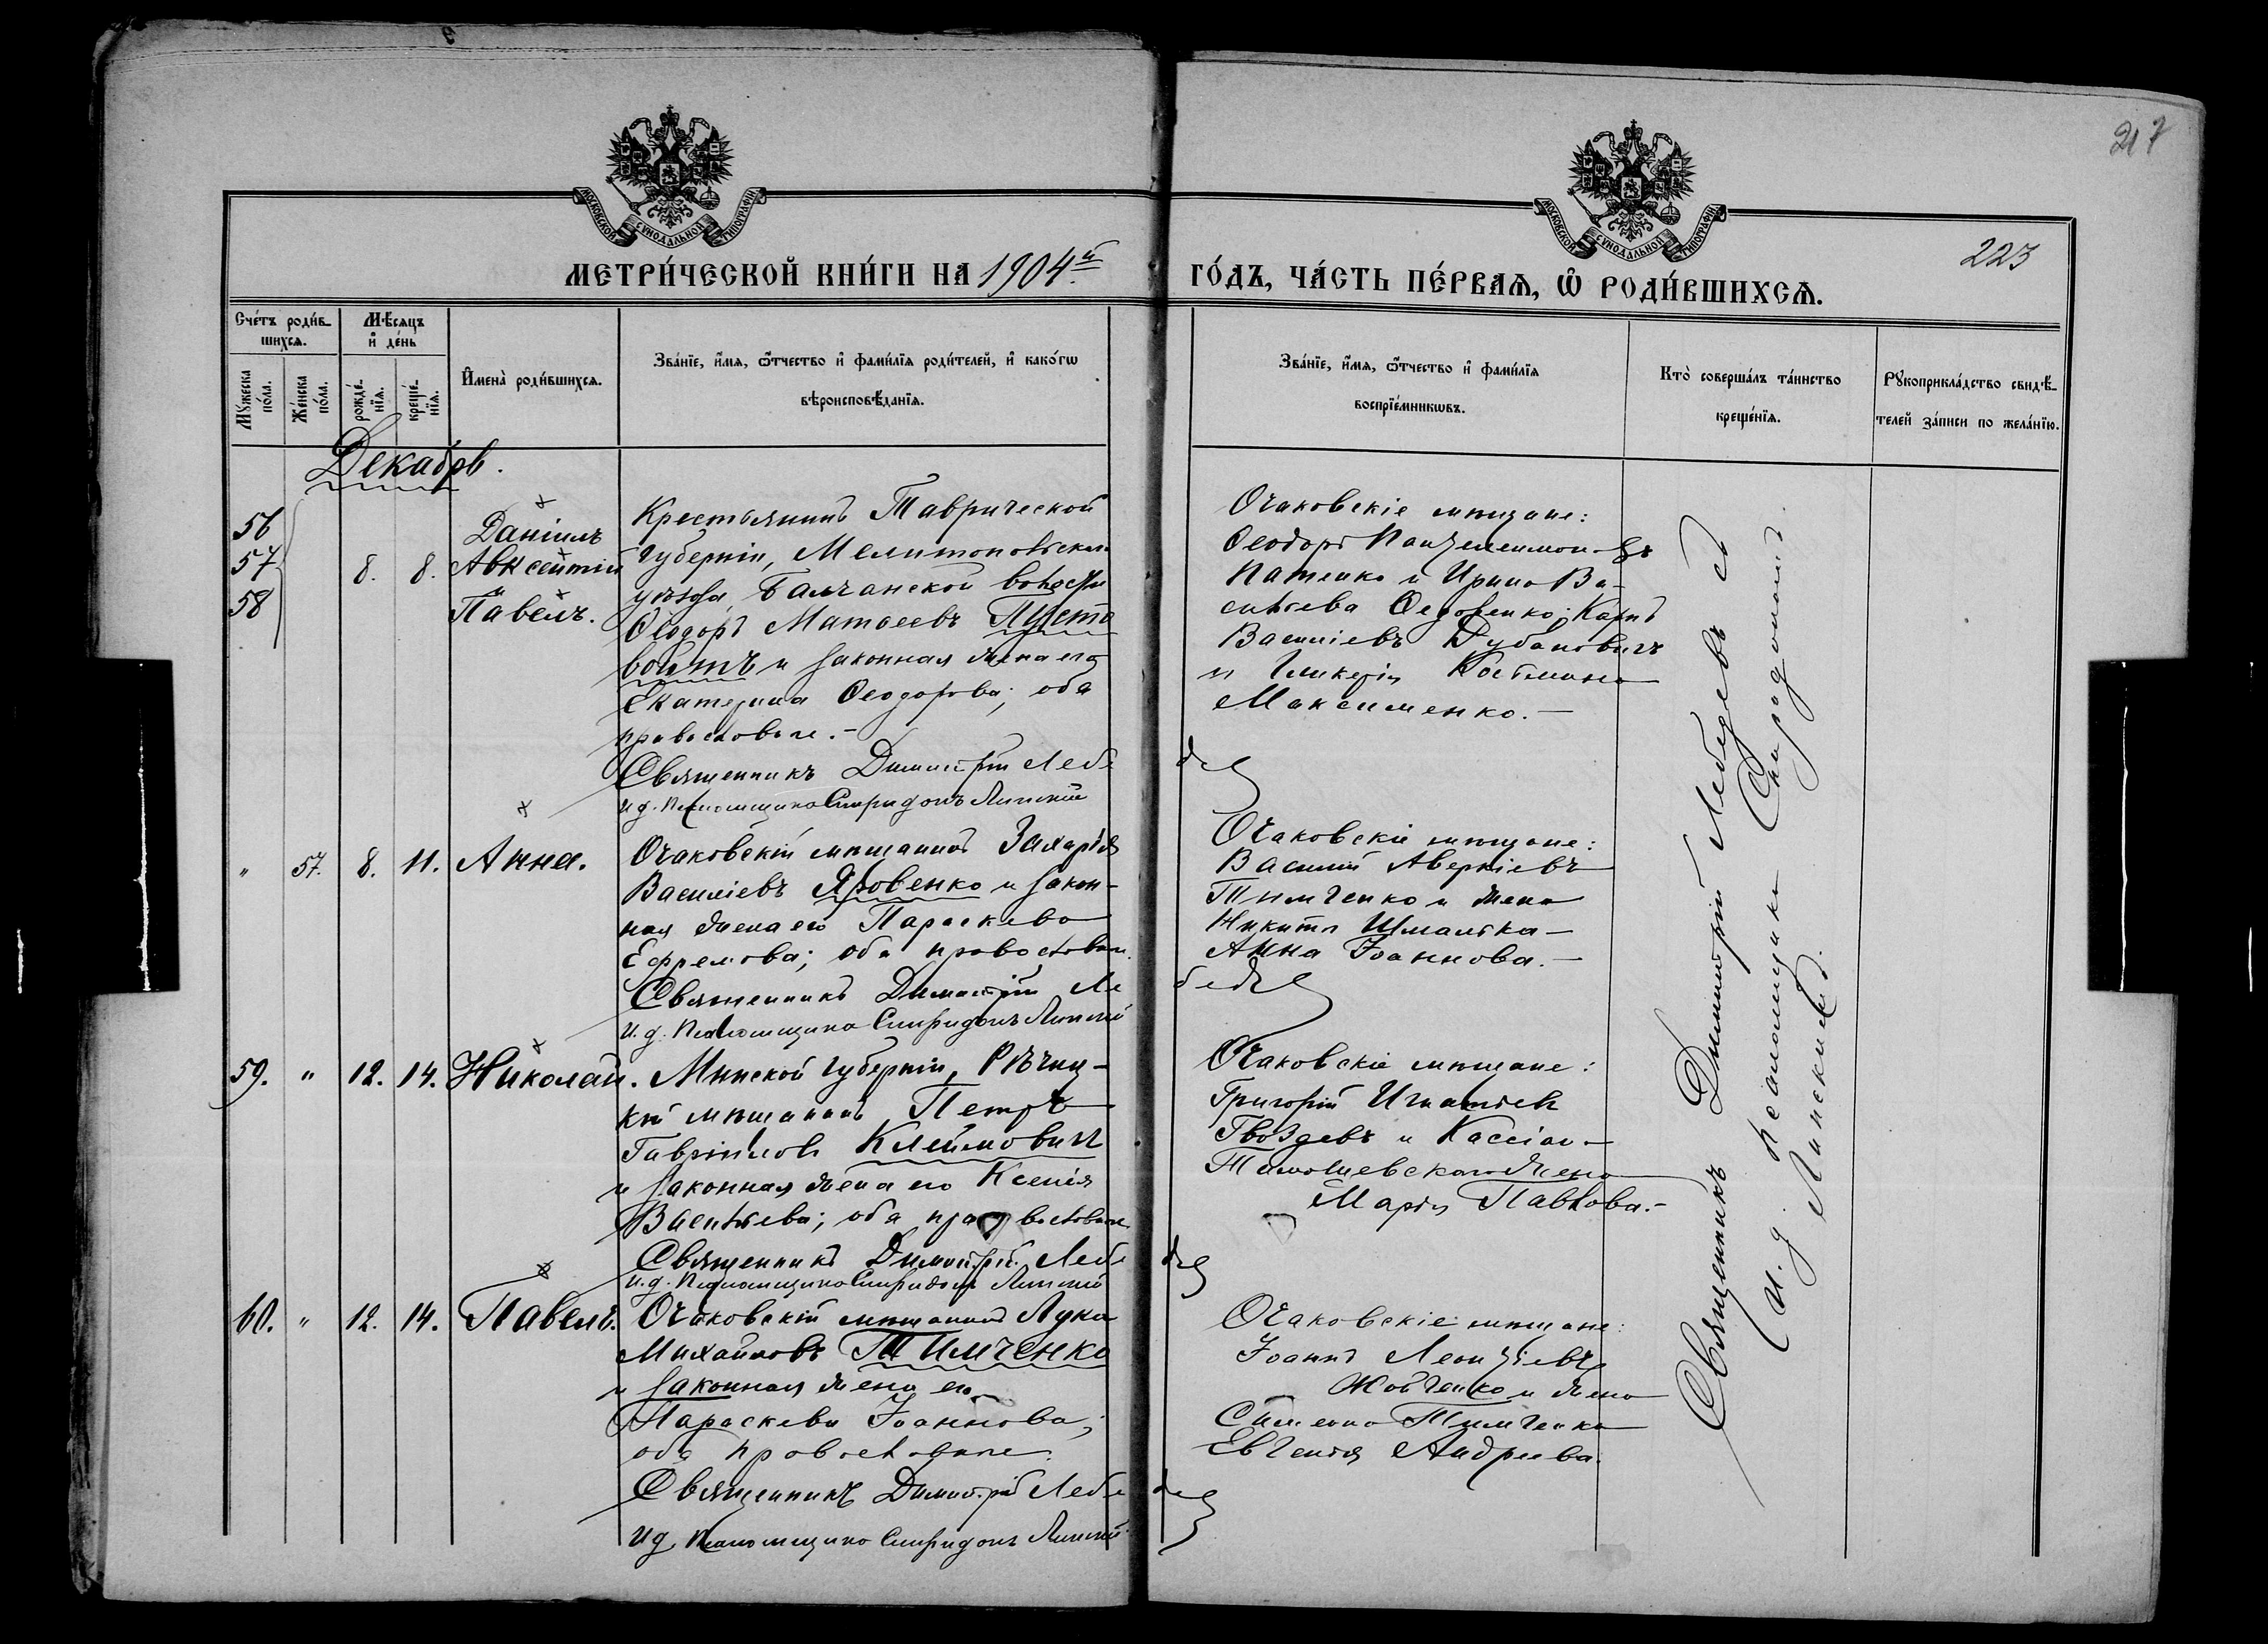 217
МОСКОВСКОЙ СУНОДАЛЬНОЙ ТИПОГРАФІИ
МОСКОВСКОЙ СУНОДАЛЬНОЙ ТИПОГРАФІИ
223
МЕТРИ́ЧЕСКОЙ КНИ́ГИ НА 1904й ГО́ДЪ, ЧА́СТЬ ПЕ́РВАѦ, Ѡ҆ РОДИ́ВШИХСѦ.
Сче́тъ роди́в-
шихсѧ.
Мꙋ́жеска по́ла.
Же́нска по́ла.
Мѣ́сѧцъ
и҆ де́нь
рожде́-
нїѧ.
креще́-
нїѧ.
И҆мена̀ роди́вшихсѧ.
Зва́нїе, и҆́мѧ, ѻ҆́тчество и҆ фами́лїѧ роди́телей, и҆ како́гѡ
вѣроисповѣ́данїѧ.
Зва́нїе, и҆́мѧ, ѻ҆́тчество и҆ фами́лїѧ
воспрїе́мникѡвъ.
Кто̀ соверша́лъ та́инство
креще́нїѧ.
Рꙋкоприкла́дство свидѣ́-
телей за́писи по жела́нїю.
Декабрь.
56
57
58
8. 8.
Даніилъ
Авксентій
и Павелъ.
Крестьянинъ Таврической
губерніи, Мелитопольскаго
уѣзда, Балчанской волости
Ѳеодоръ Матѳеевъ Пусто
войтъ и законная жена его
Екатерина Ѳеодорова; оба
православные.-
Священникъ Димитрій Лебедев
и д. Псаломщика Спиридонъ Липскій
Очаковскіе мѣщане:
Ѳеодоръ Пантелеимоновъ
Патенко и Ирина Ва-
сильева Федоренко; Карпъ
Василіевъ Дубановичъ
и Гликерія Косьмина
Максименко.-
" 57. 8. 11. Анна.
Очаковскій мѣщанинъ Захарія
Василіевъ Яровенко и закон-
ная жена его Параскева
Ефремова; оба православные.
Священникъ Димитрій Лебедев
И. д. Псаломщика Спиридонъ Липскій
Очаковскіе мѣщане:
Василій Аверкіевъ
Тимченко и жена
Никиты Шмалька-
Анна Іоаннова.-
59. " 12. 14. Николай.
Минской губерніи, Рѣчиц-
кій мѣщанинъ Петръ
Гавріиловъ Клеймовичъ
и законная жена его Ксенія
Васильева; оба православные
Священникъ Димитрій Лебедев
И. д. Псаломщика Спиридонъ Липскій
Очаковскіе мѣщане:
Григорій Игнатьевъ
Гвоздевъ и Кассіана
Тимошевскаго жена
Марія Павлова.-
60. " 12. 14. Павелъ.
Очаковскій мѣщанинъ Лука
Михайловъ Тимченко
и законная жена его
Параскева Іоаннова;
оба православные.
Священникъ Димитрій Лебедев
И д. Псаломщика Спиридонъ Липскій
Очаковскіе мѣщане:
Іоаннъ Леонтіевъ
Жовченко и жена
Симеона Тимченка
Евгенія Андреева.
Священникъ Димитрій Лебедевъ съ
и. д. псаломщика Спиридономъ
Липскимъ.